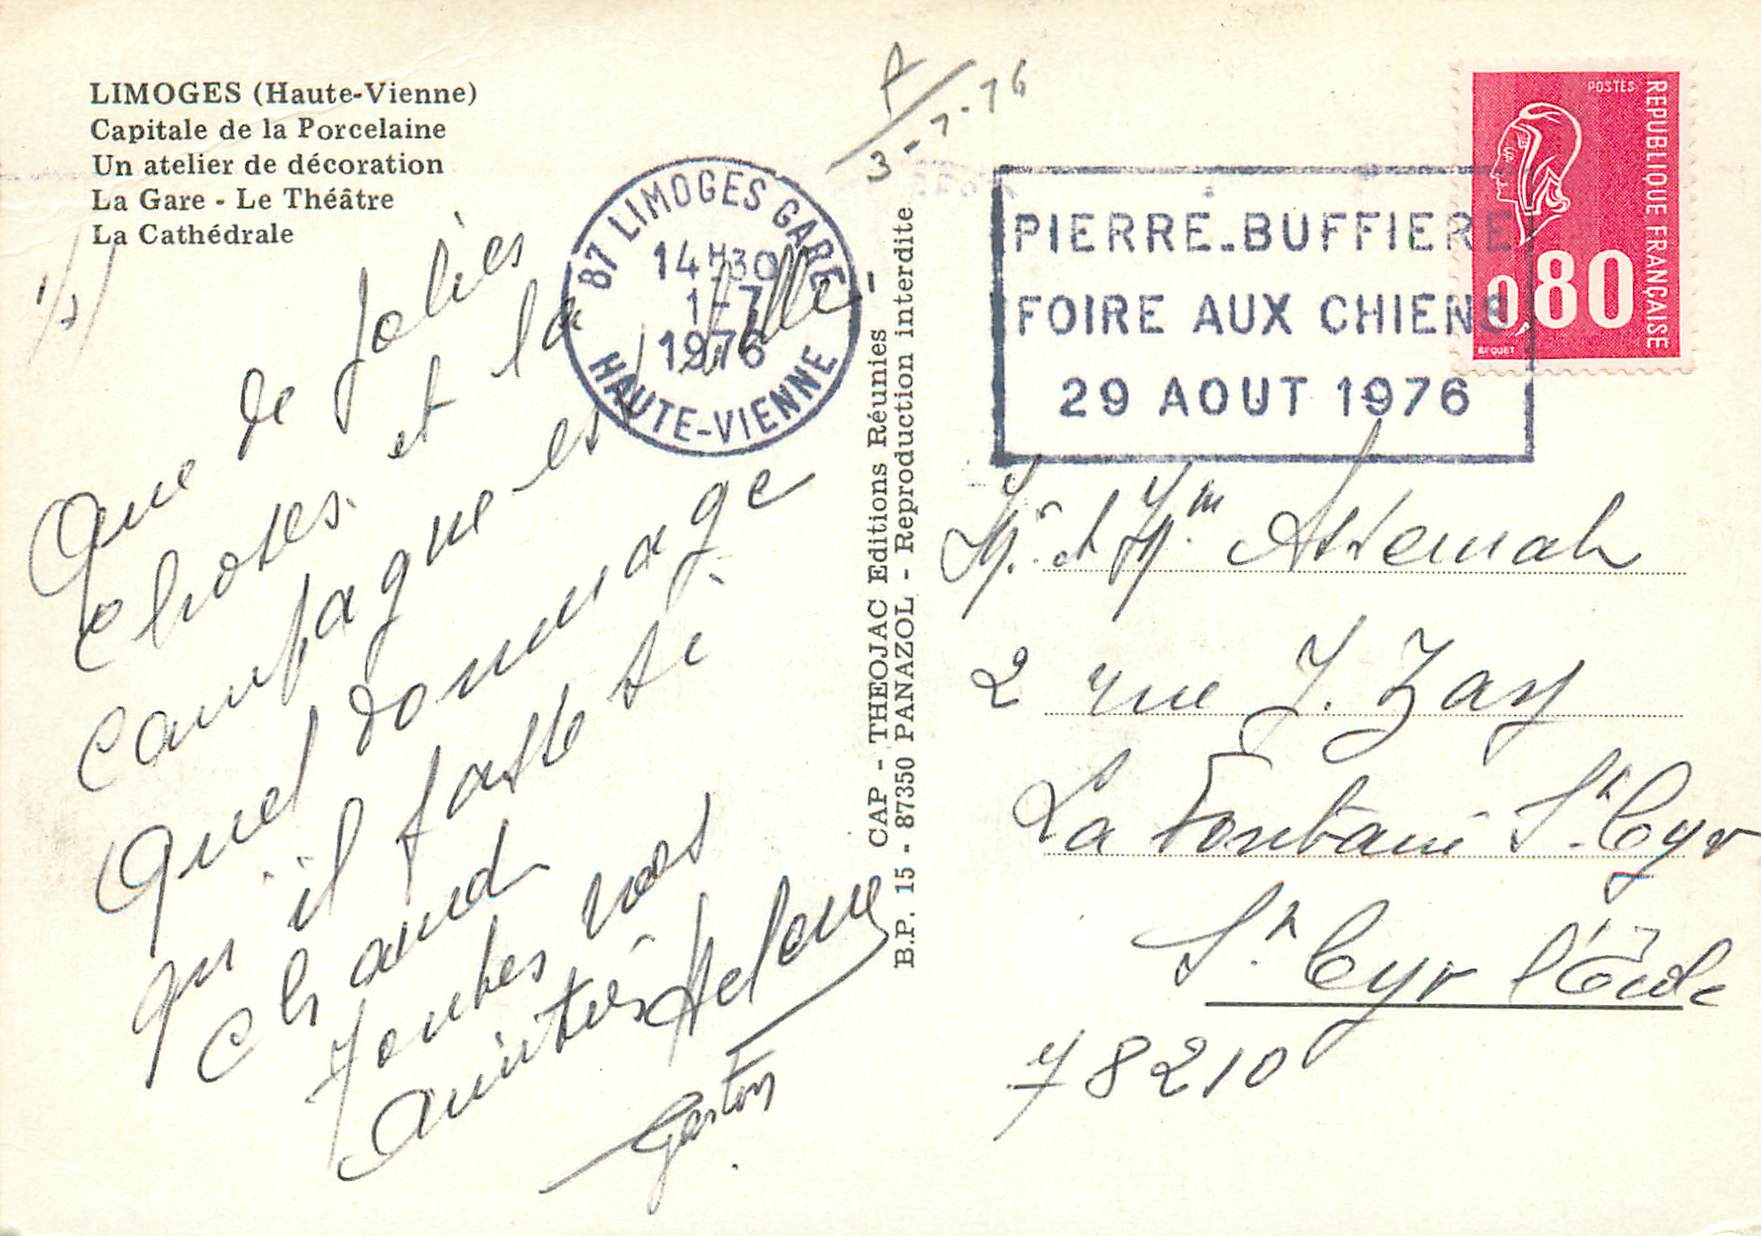 LIMOGES (Haute-Vienne)
Capitale de la Porcelaine
Un atelier de décoration
La Gare - Le Théâtre
La Cathédrale
Que de jolies
choses et la ville
campagne est
Quel dommage
qu'il fasse si
chaud
Toutes nos
amitiés Helene
Gaston
87 LIMOGES GARE
14H30
1-7
1976
HAUTE-VIENNE
3-7-76
CAP - THEOJAC Editions Réunies
B.P. 15 - 87350 PANAZOL - Reproduction interdite
PIERRE-BUFFIERE
FOIRE AUX CHIENS
29 AOUT 1976
POSTES
REPUBLIQUE FRANÇAISE
0,80
BEQUET
Mr et Mm
2 rue J. Zay
La Fontaine St Cyr
St Cyr l'École
78210